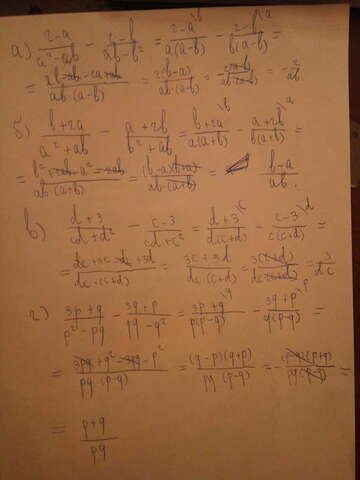 а) (2-a)/(a²-ab) - (2-b)/(ab-b²) = (2-a)\b/(a(a-b)) - (2-b)\a/(b(a-b)) =
= (2b-ab-2a+ab)/(ab·(a-b)) = (2(b-a))/(ab·(a-b)) = -(2(a-b))/(ab·(a-b)) = -2/ab
б) (b+2a)/(a²+ab) - (a+2b)/(b²+ab) = (b+2a)\b/(a(a+b)) - (a+2b)\a/(b(a+b)) =
= (b²+2ab-a²-2ab)/(ab(a+b)) = ((b-a)(b+a))/(ab·(a+b)) = (b-a)/ab.
в) (d+3)/(cd+d²) - (c-3)/(cd+c²) = (d+3)\c/(d(c+d)) - (c-3)\d/(c(c+d)) =
= (dc+3c-dc+3d)/(dc·(c+d)) = (3c+3d)/(dc·(c+d)) = (3(c+d))/(dc(c+d)) = 3/dc
г) (3p+q)/(p²-pq) - (3q+p)/(pq-q²) = (3p+q)\q/(p(p-q)) - (3q+p)\p/(q(p-q)) =
= (3pq+q²-3pq-p²)/(pq·(p-q)) = ((q-p)(q+p))/(pq(p-q)) = -((p-q)(p+q))/(pq(p-q)) =
= (p+q)/pq